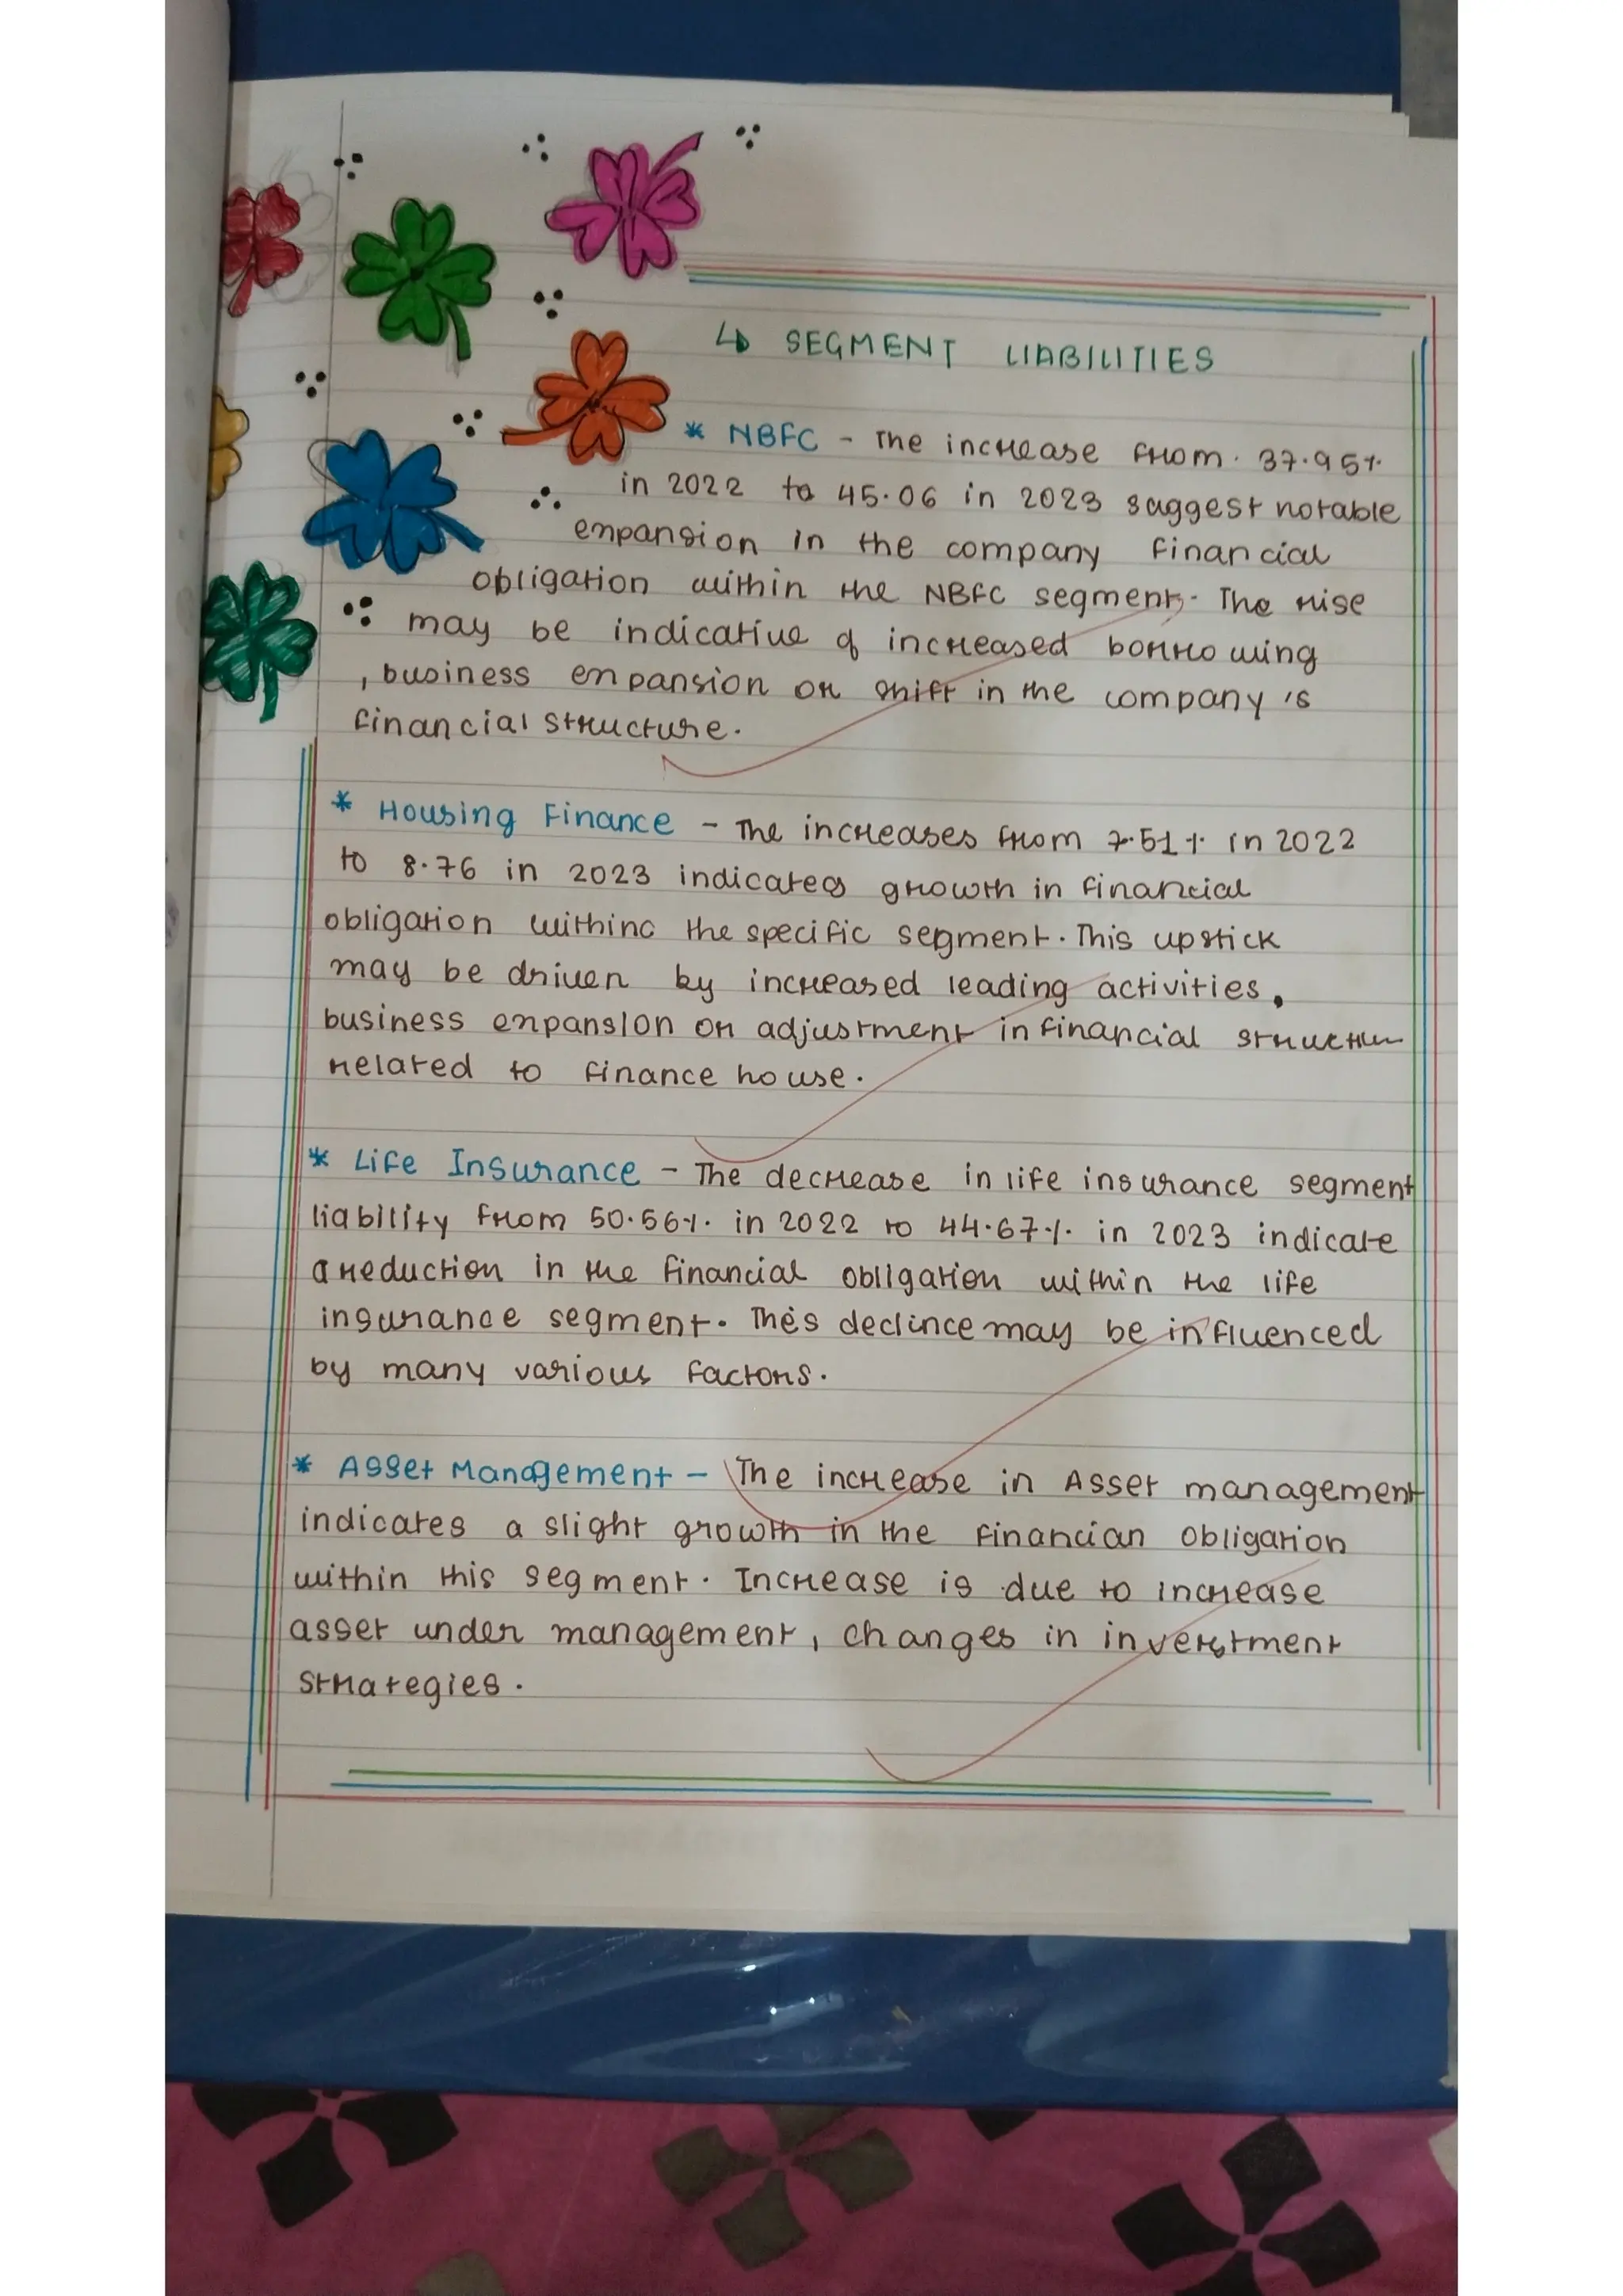 ↳ SEGMENT LIABILITIES
* NBFC - The increase from 37.95%
in 2022 to 45.06 in 2023 suggest notable
expansion in the company financial
obligation within the NBFC segment. The rise
may be indicative of increased borrowing
, business expansion or shift in the company's
financial structure.
* Housing Finance - The increases from 7.51% in 2022
to 8.76 in 2023 indicates growth in financial
obligation withinc the specific segment. This upstick
may be driven by increased leading activities,
business expansion or adjustment in financial structure
related to finance house.
* Life Insurance - The decrease in life insurance segment
liability from 50.56%. in 2022 to 44.67%. in 2023 indicate
a reduction in the financial obligation within the life
insurance segment. This declince may be influenced
by many various factors.
* Asset Management - The increase in Asset management
indicates a slight growth in the financian obligation
within this segment. Increase is due to increase
asset under management, changes in inverstment
strategies.